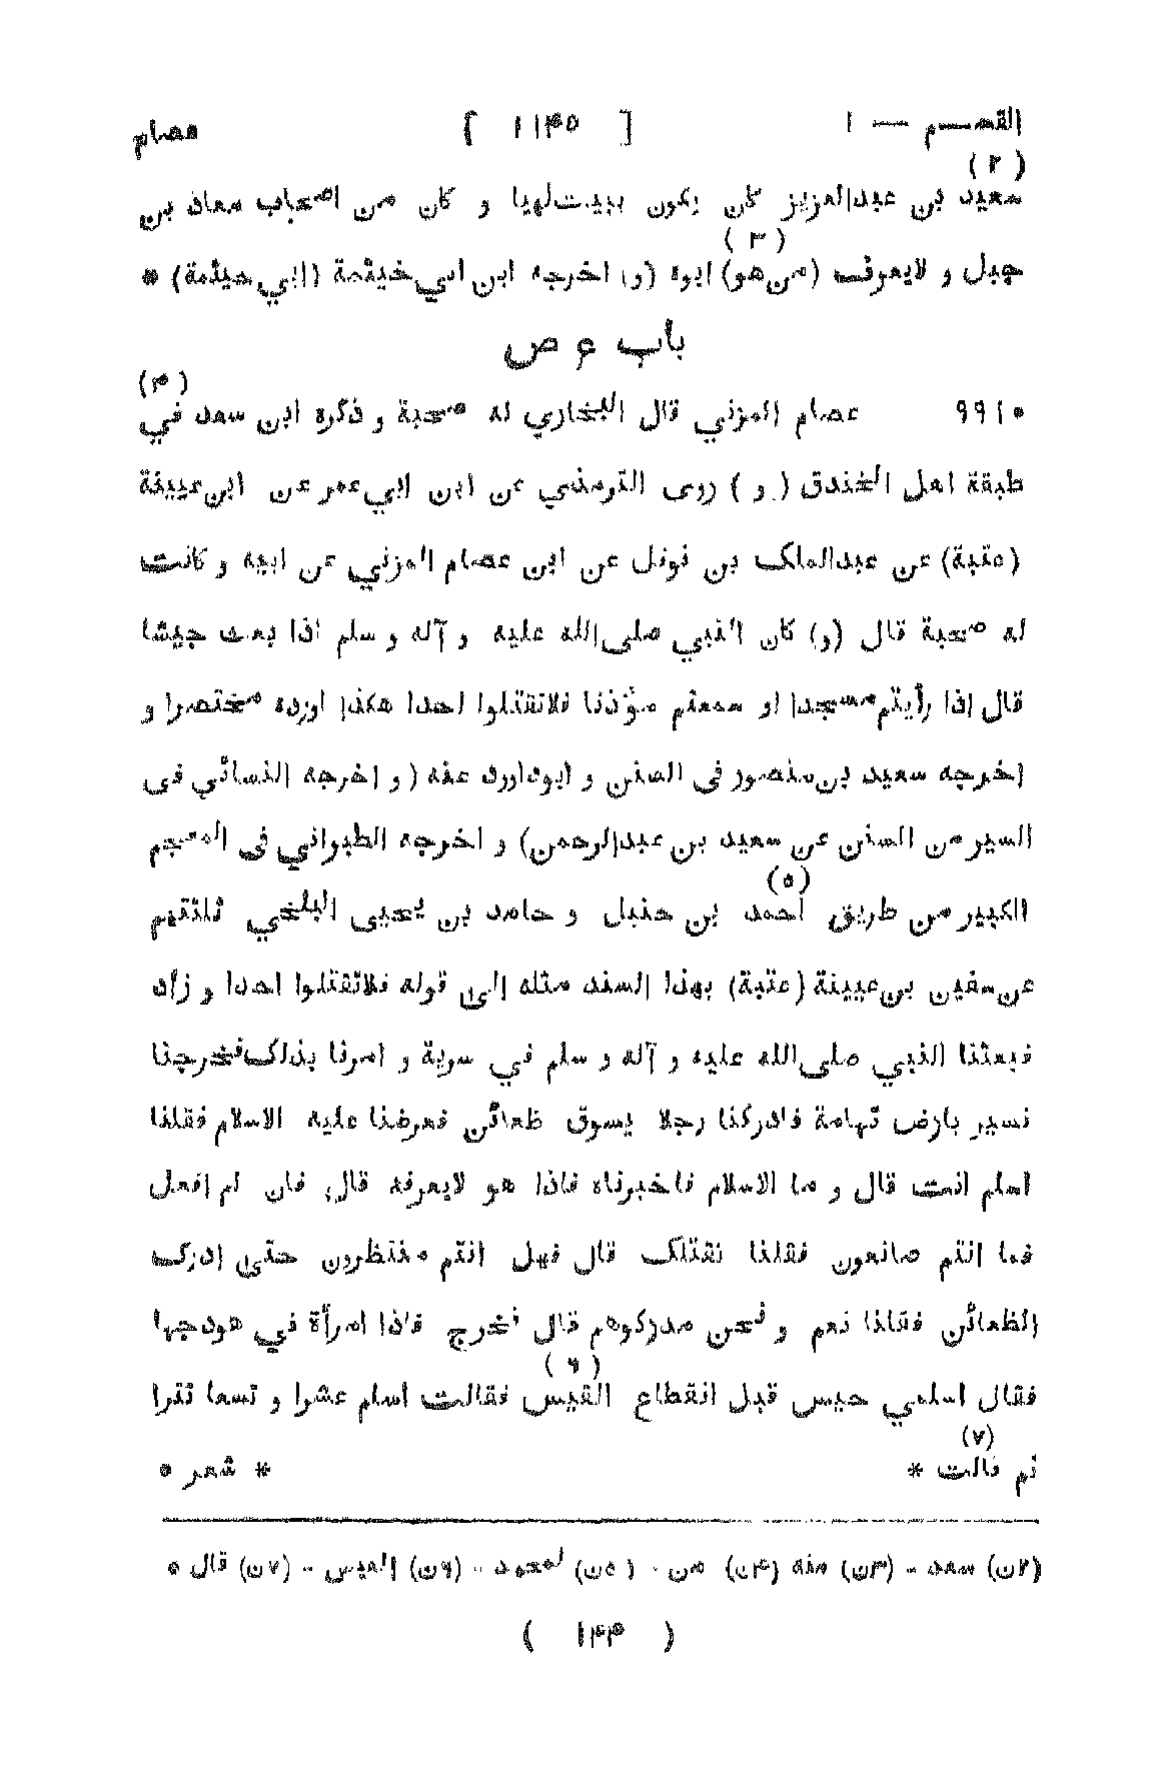 القسم — ١ [ ١١٤٥ ] عصام
(٢)
سعيد بن عبدالعزيز كان يكون ببيت لهيا و كان من اصحاب معاذ بن
(٣)
جبل و لايعرف (من هو) ابوه (و) اخرجه ابن ابي خيثمة (ابي حيثمة) *
باب ع ص
(٤)
٩٩١٠ عصام المزني قال البخاري له صحبة و ذكره ابن سعد في
طبقة اهل الخندق ( و ) روى الترمذي عن ابن ابي عمر عن ابن عيينة
(عتبة) عن عبدالملك بن نوفل عن ابن عصام المزني عن ابيه و كانت
له صحبة قال (و) كان النبي صلى الله عليه و آله و سلم اذا بعث جيشا
قال اذا رأيتم مسجدا او سمعتم مؤذنا فلاتقتلوا احدا هكذا اورده مختصرا و
اخرجه سعيد بن منصور فى السنن و ابوداود عنه ( و اخرجه النسائي فى
السير من السنن عن سعيد بن عبدالرحمن) و اخرجه الطبراني فى المعجم
(٥)
الكبير من طريق احمد بن حنبل و حامد بن يحيى البلخي ثلثتهم
عن سفين بن عيينة (عتبة) بهذا السند مثله الى قوله فلاتقتلوا احدا و زاد
فبعثنا النبي صلى الله عليه و آله و سلم في سرية و امرنا بذلك فخرجنا
نسير بارض تهامة فادركنا رجلا يسوق ظعائن فعرضنا عليه الاسلام فقلنا
امسلم انت قال و ما الاسلام فاخبرناه فاذا هو لايعرفه قال فان لم افعل
فما انتم صانعون فقلنا نقتلك قال فهل انتم منتظرون حتى ادرك
الظعائن فقلنا نعم و نحن مدركوهم قال فخرج فاذا امرأة في هودجها
(٦)
فقال اسلمي حبيس قبل انقطاع القيس فقالت اسلم عشرا و تسعا تترا
(٧)
ثم قالت * * شعر *
(٢ن) سعد - (٣ن) منه (٤ن) من - (٥ن) محمد - (٦ن) العيس - (٧ن) قال *
( ١٤٤ )